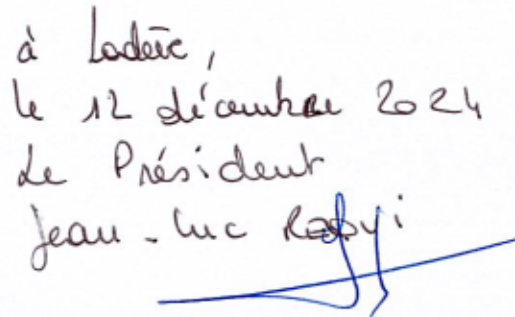 à Lodève,
le 12 décembre 2024
Le Président
Jean-Luc